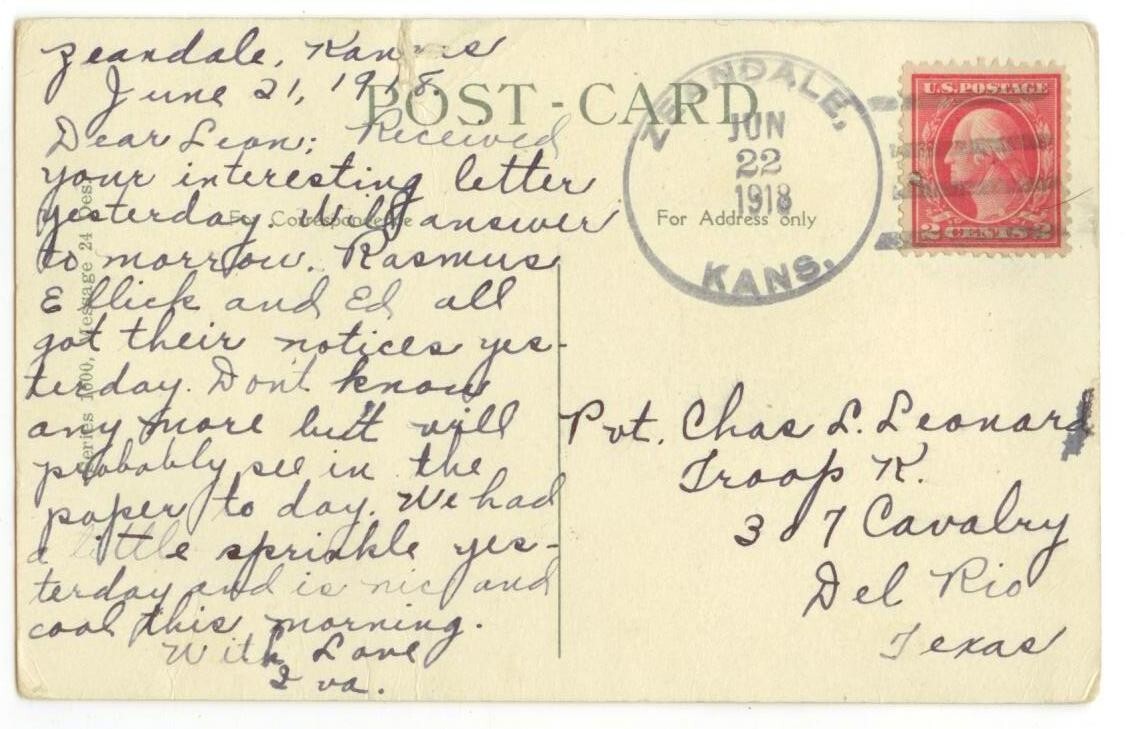 Zeandale, Kansas
June 21, 1918.
Dear Leon; Received
your interesting letter
yesterday. Will answer
to morrow. Rasmus
Ellick and Ed all
got their notices yes-
terday. Dont know
any more but will
probably see in the
paper to day. We had
a little sprinkle yes-
terday and is nic and
cool this morning.
With Love
Iva.
POST-CARD
For Correspondence
For Address only
Series 1600, Message 24 Des.
ZEANDALE,
JUN
22
1918
KANS.
U.S. POSTAGE
2 CENTS 2
Pvt. Chas L. Leonard
Troop K.
307 Cavalry
Del Rio
Texas